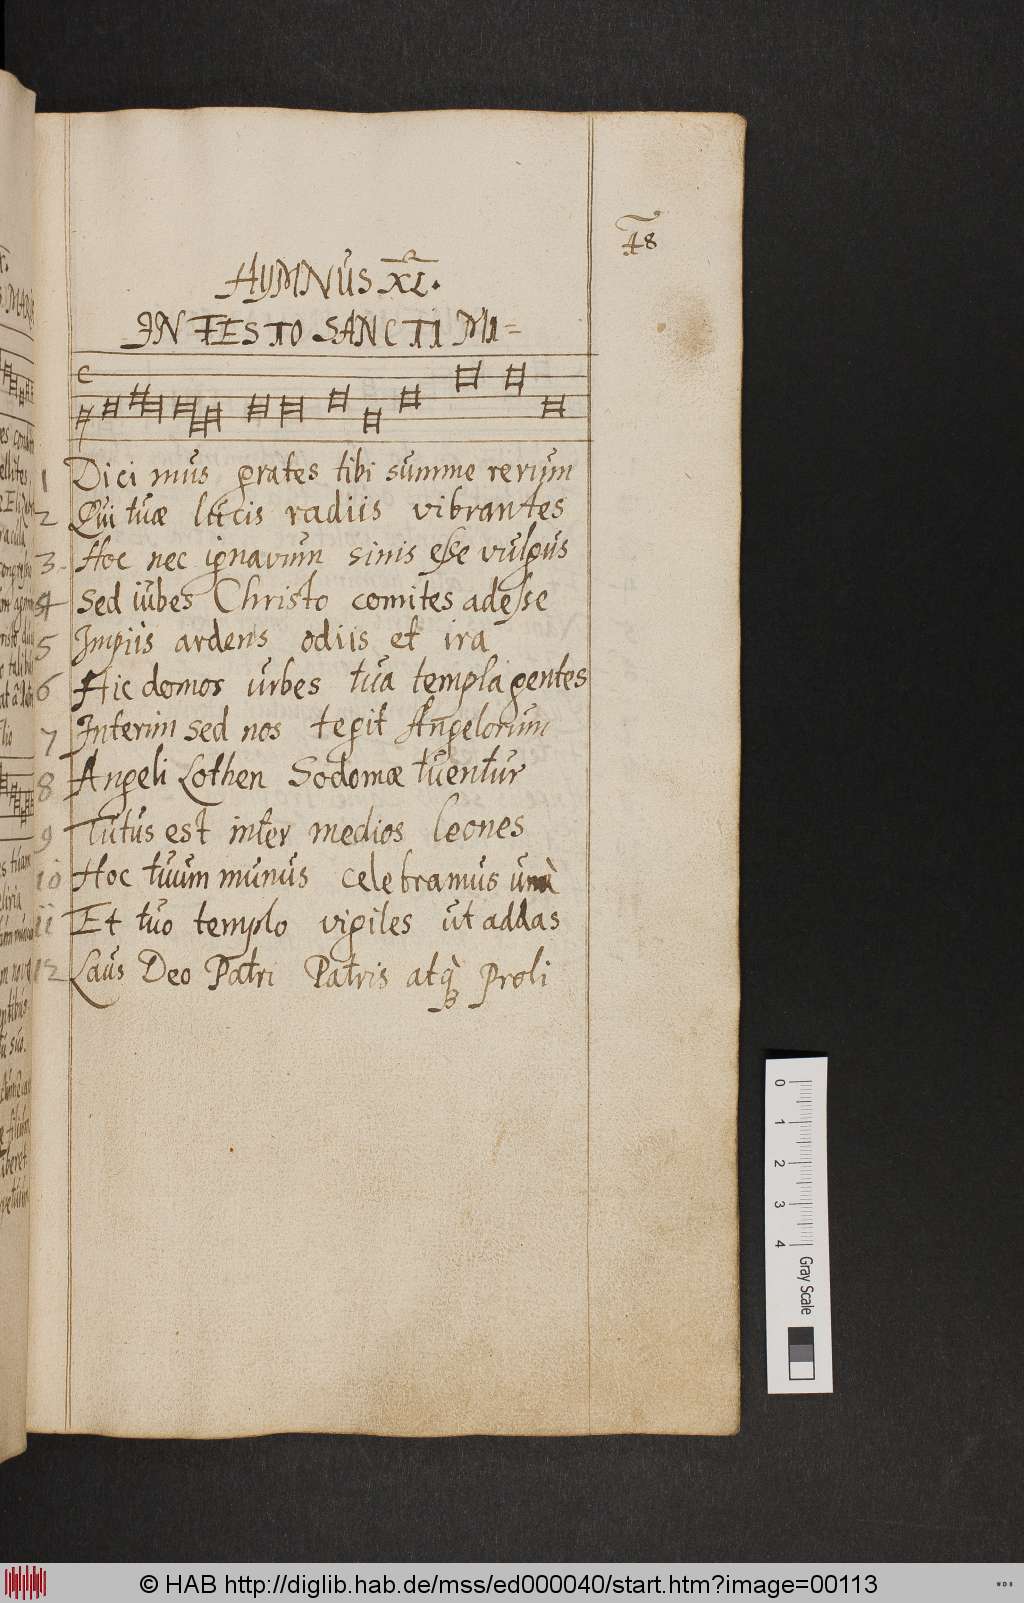 48
HYMNUS XL.
IN FESTO SANCTI MI=
1 Dici mus grates tibi summe rerum
2 Qui tuæ lucis radiis vibrantes
3. Hoc nec ignavum sinis esse vulgus
4 Sed iubes Christo comites adesse
5 Impiis ardens odiis et ira
6 Hic domos urbes tua templa gentes
7 Interim sed nos tegit Angelorum
8 Angeli Lothen Sodomæ tuentur
9 Tutus est inter medios leones
10 Hoc tuum munus celebramus unà
11 Et tuo templo vigiles ut addas
12 Laus Deo Patri Patris atq; proli
0 1 2 3 4 Gray Scale
© HAB http://diglib.hab.de/mss/ed000040/start.htm?image=00113